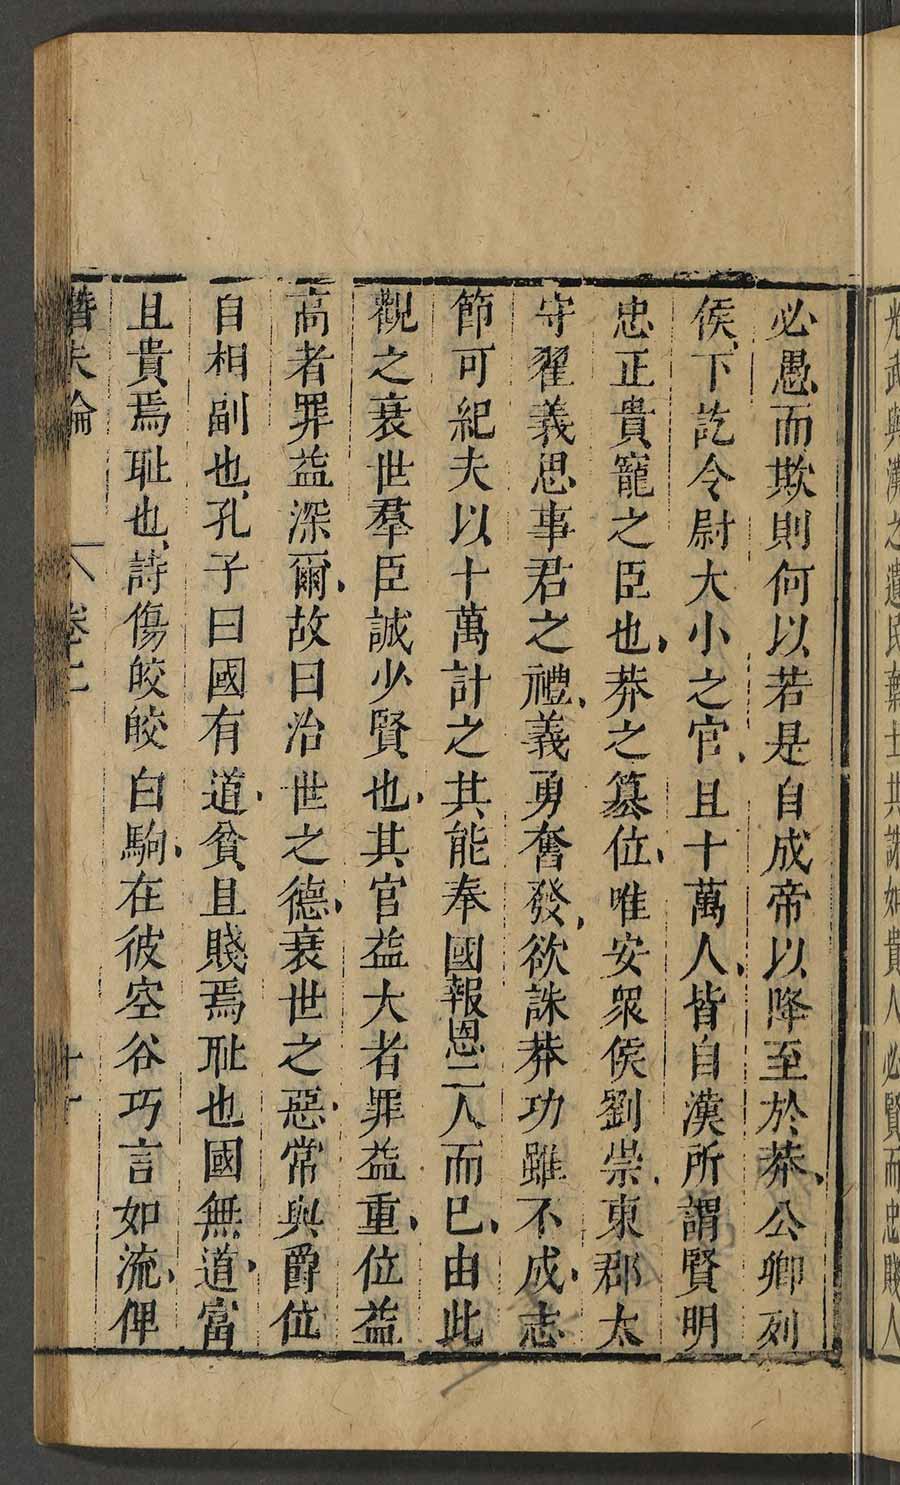 光武與漢之遺民棄士共誅如貴人必賢而忠賤人
必愚而欺則何以若是自成帝以降至於莽公卿列
侯下訖令尉大小之官且十萬人皆自漢所謂賢明
忠正貴寵之臣也莽之篡位唯安眾侯劉崇東郡太
守翟義思事君之禮義勇奮發欲誅莽功雖不成志
節可紀夫以十萬計之其能奉國報恩二人而已由此
觀之衰世羣臣誠少賢也其官益大者罪益重位益
高者罪益深爾故曰治世之德衰世之惡常與爵位
自相副也孔子曰國有道貧且賤焉耻也國無道富
且貴焉耻也詩傷皎皎白駒在彼空谷巧言如流俾
潛夫論 卷上 十一